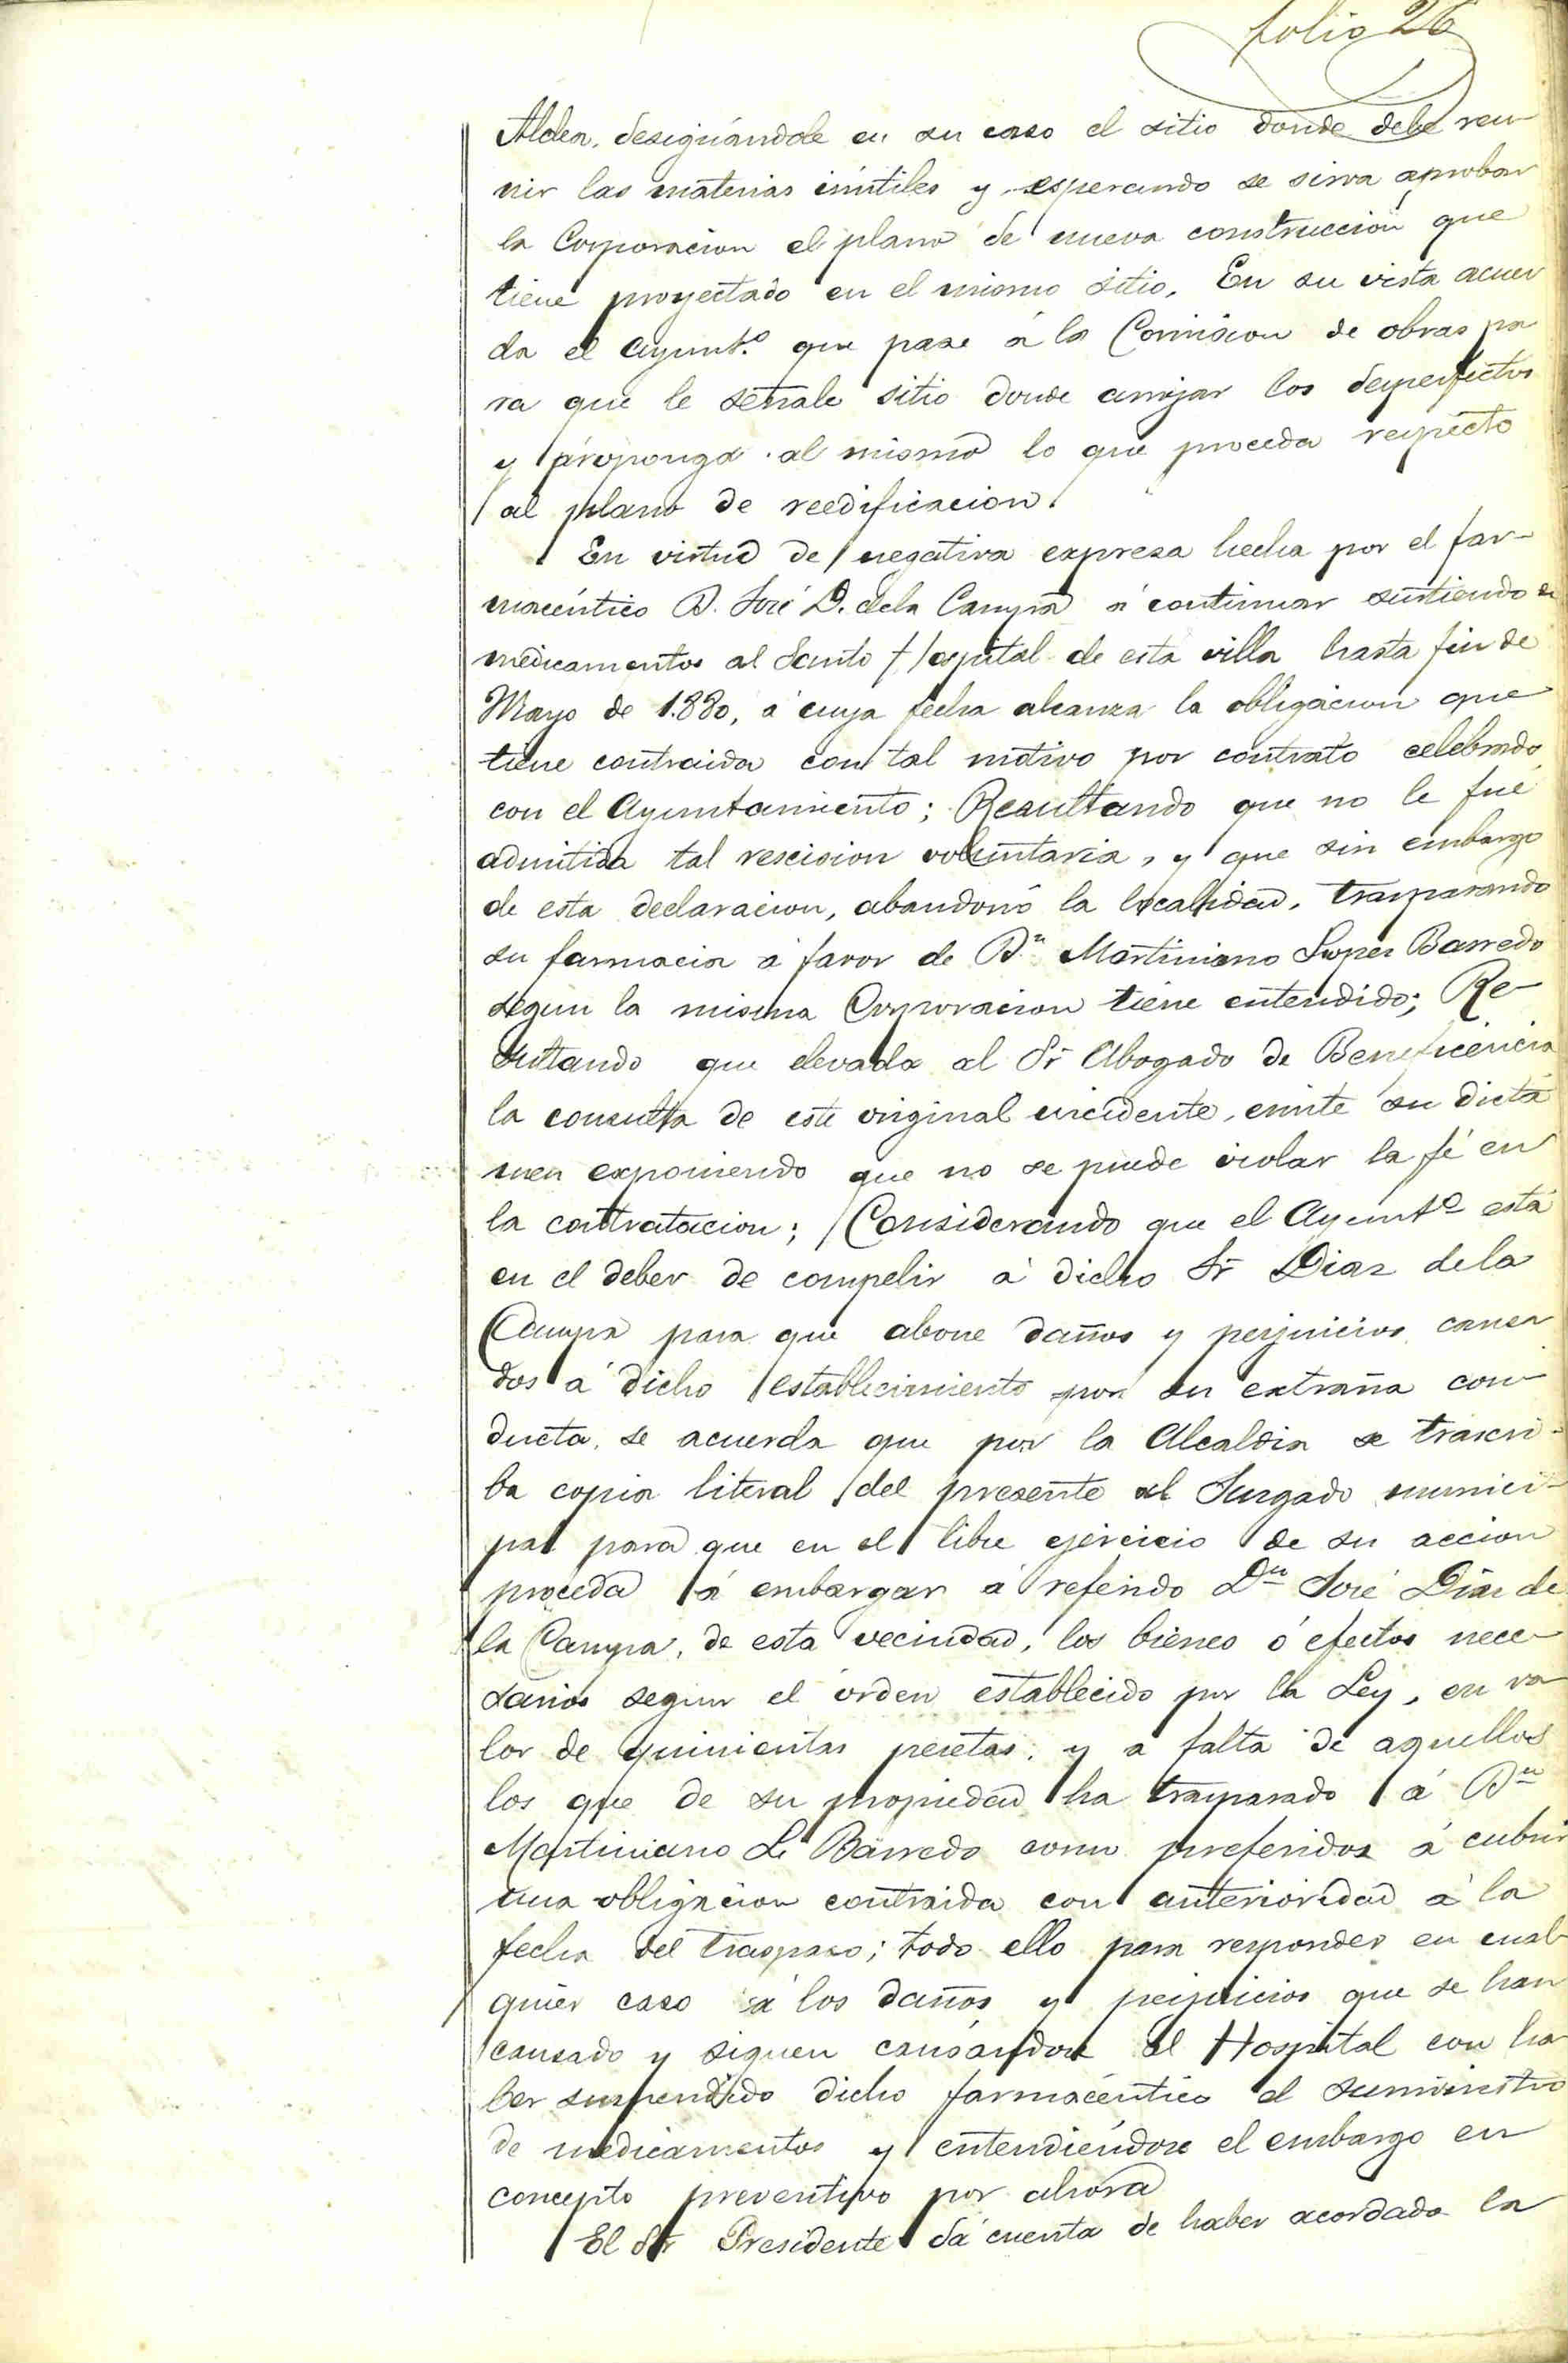 folio 26
Aldea, designándole en su caso el sitio donde debe reu-
nir las materias inútiles y esperando se sirva aprobar
la Corporacion el plano de nueva construcción que
tiene proyectado en el mismo sitio. En su vista acuer
da el Ayunt.º que pase á la Comision de obras pa
ra que le señale sitio donde arrojar los desperfectos
y proponga al mismo lo que proceda respecto
al plano de reedificacion.
En virtud de negativa expresa hecha por el far-
macéutico D. José D. dela Campa á continuar surtiendo de
medicamentos al Santo Hospital de esta villa hasta fin de
Mayo de 1.880, á cuya fecha alcanza la obligacion que
tiene contraida con tal motivo por contrato celebrado
con el Ayuntamiento; Resultando que no le fué
admitida tal rescision voluntaria, y que sin embargo
de esta declaracion, abandonó la localidad, traspasando
su farmacia á favor de Dn Martiniano Lopez Barredo
segun la misma Corporacion tiene entendido; Re-
sultando que elevada al Sr Abogado de Beneficencia
la consulta de este original incidente, emite su dictá
men exponiendo que no se puede violar la fé en
la contratacion; Considerando que el Ayuntº está
en el deber de compelir á dicho Sr Diaz dela
Campa para que abone daños y perjuicios causa
dos á dicho establecimiento por su extraña con-
ducta, se acuerda que por la Alcaldia se trascri-
ba copia literal del presente al Juzgado munici-
pal para que en el libre ejercicio de su accion
proceda á embargar á referido Dn José Diaz de
la Campa, de esta vecindad, los bienes ó efectos nece-
sarios segun el órden establecido por la Ley, en va
lor de quinientas pesetas, y á falta de aquellos
los que de su propiedad ha traspasado á Dn
Martiniano L. Barredo como preferidos á cubrir
una obligacion contraida con anterioridad á la
fecha del traspaso; todo ello para responder en cual-
quier caso á los daños y perjuicios que se han
causado y siguen causándose al Hospital con ha-
ber suspendido dicho farmacéutico el suministro
de medicamentos y entendiéndose el embargo en
concepto preventivo por ahora
El Sr Presidente dá cuenta de haber acordado la